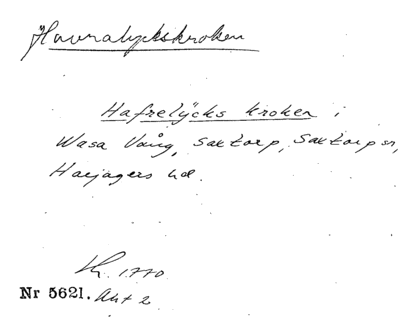 Havralyckskroken
Hafrelÿcks kroken i
Wasa Vång, Saxtorp, Saxtorps sn,
Harjagers hd.
LK. 1770
Nr 5621. Akt 2